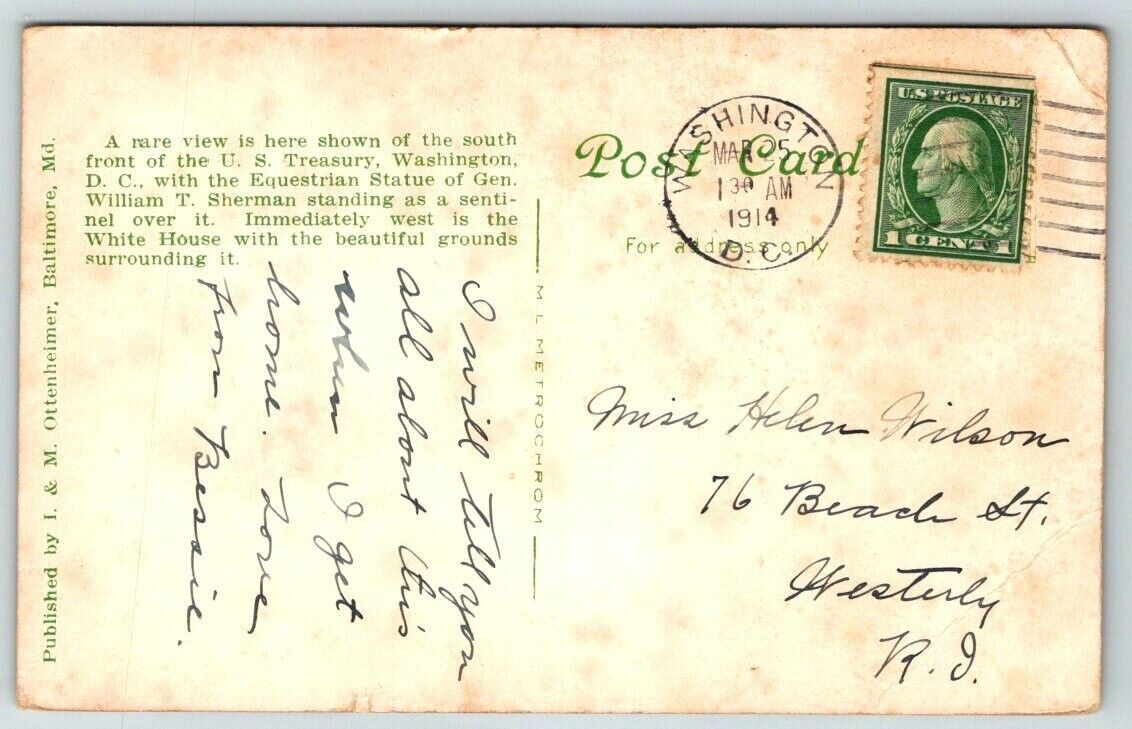 Published by I. & M. Ottenheimer, Baltimore, Md.
A rare view is here shown of the south
front of the U. S. Treasury, Washington,
D. C., with the Equestrian Statue of Gen.
William T. Sherman standing as a senti-
nel over it. Immediately west is the
White House with the beautiful grounds
surrounding it.
I will tell you
all about this
when I get
home. Love,
From Bessie.
M. L. METROCHROM
Post Card
For address only
WASHINGTON
MAR 25
1 30 AM
1914
D.C.
U.S. POSTAGE
1 CENT 1
Miss Helen Wilson
76 Beach St.
Westerly
R.I.